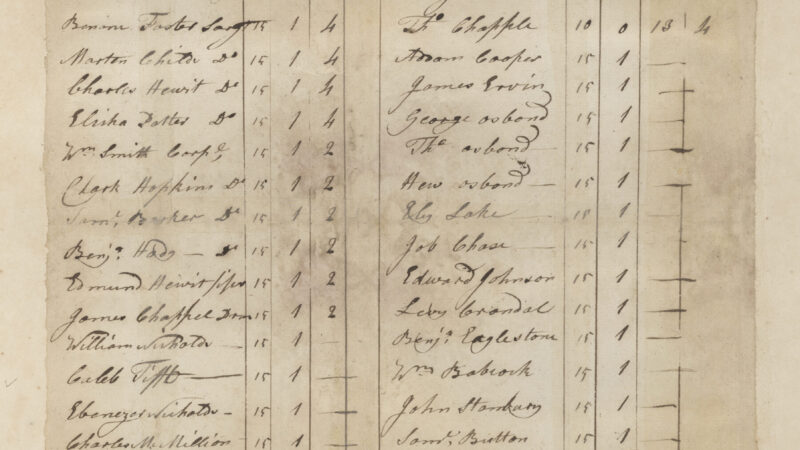 Benine Foster Sargt 15 1 4
Marton Childs Do 15 1 4
Charles Hewit Do 15 1 4
Elisha Potter Do 15 1 4
Wm Smith Corpl, 15 1 2
Clark Hopkins Do 15 1 2
Saml. Barker Do 15 1 2
Benja. Do 15 1 2
Edmund Hewit fifer 15 1 2
James Chappel Drm 15 1 2
William Nichols 15 1 —
Caleb Tifft — 15 1 —
Ebenezer Nichols - 15 1 —
Charles Mc Million 15 1 —
Tho. Chapple 10 0 13 4
Addam Cooper 15 1 —
James Ervin 15 1 —
George osbond 15 1 —
Tho. osbond 15 1 —
Hew osbond — 15 1 —
Ely Lake — 15 1 —
Job Chase — 15 1 —
Edward Johnson 15 1 —
Levy Crandal 15 1 —
Benja. Eaglestone 15 1 —
Wm Babcock 15 1 —
John Stanbury 15 1 —
Saml. Button 15 1 —